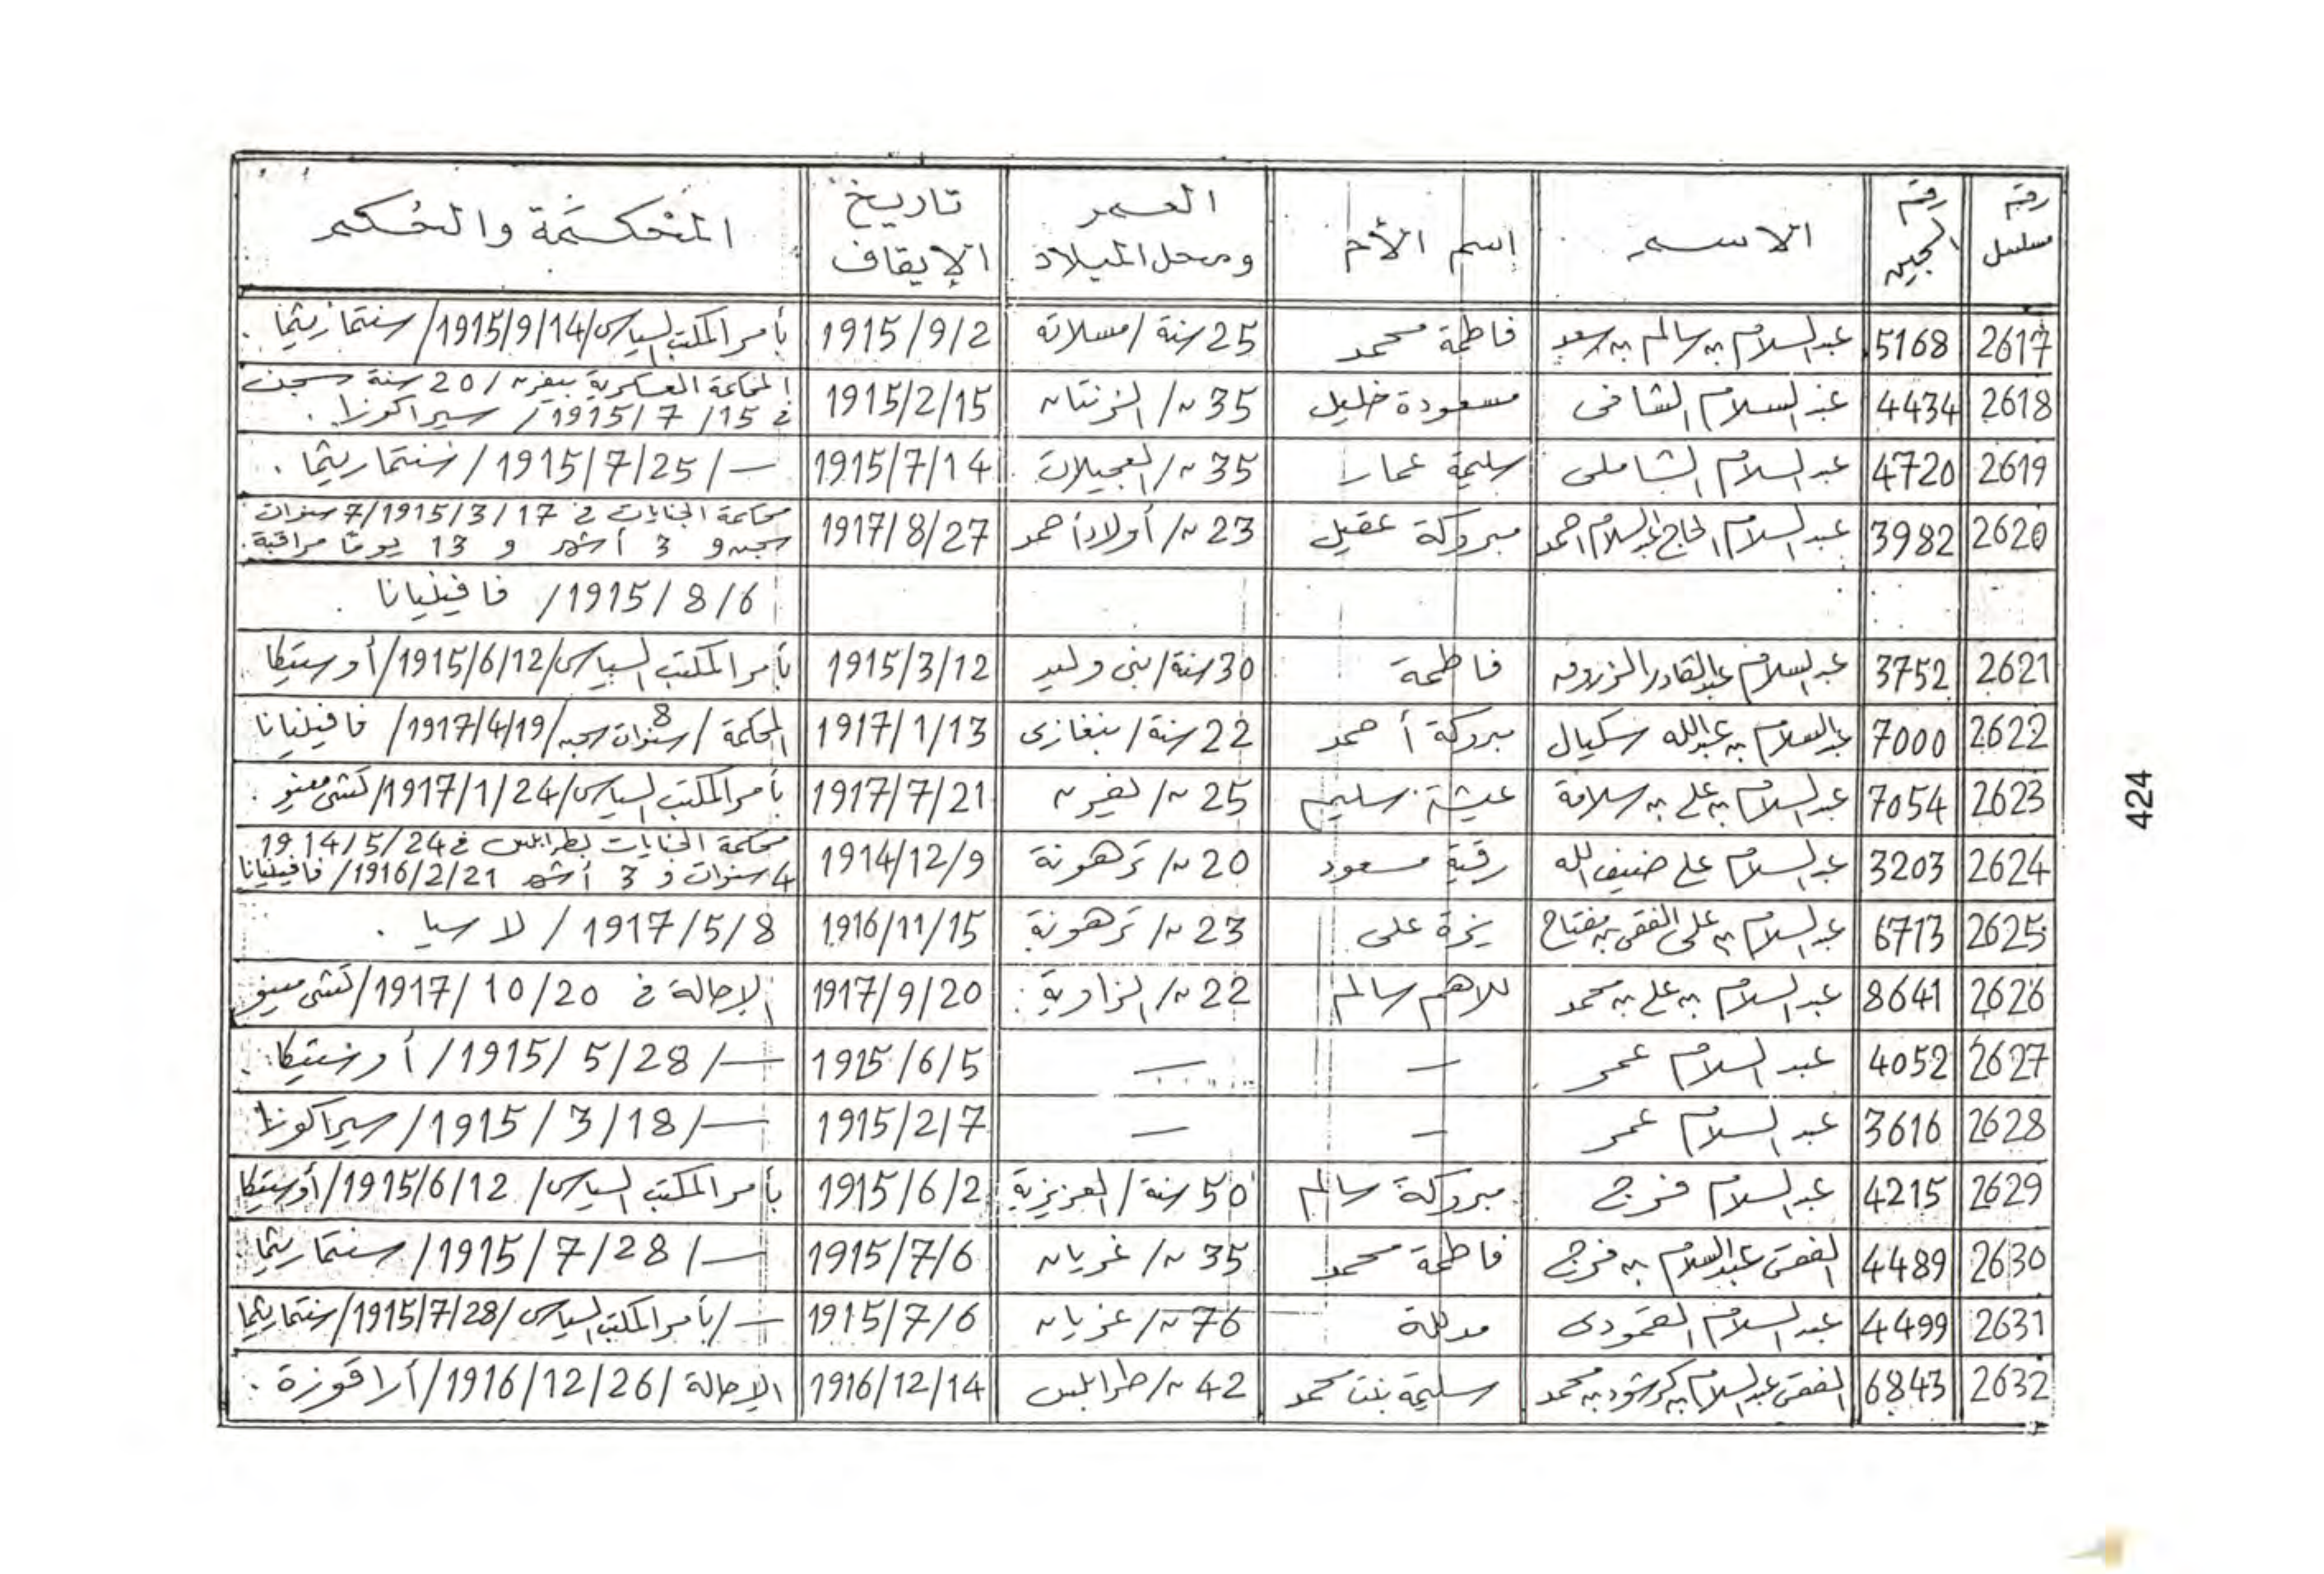 رقم مسلسل | رقم السجين | الاسم | إسم الأم | العمر ومحل الميلاد | تاريخ الإيقاف | المحكمة والحكم
2617 | 5168 | عبد السلام بن سالم بن سعد | فاطمة محمد | 25 سنة / مسلاته | 1915/9/2 | بأمر المكتب السياسى / 1915/9/14 / سنتمازيتما .
2618 | 4434 | عبد السلام الشافى | مسعودة خليل | 35 ~ / الزنتان | 1915/2/15 | المحكمة العسكرية بيفرن / 20 سنة سجن
في 15 / 7 / 1915 / سيراكوزا .
2619 | 4720 | عبد السلام الشاملى | سليمة عمار | 35 ~ / العجيلات | 1915/7/14 | — / 1915/7/25 / سنتماريتما .
2620 | 3982 | عبد السلام الحاج عبد السلام احمد | مبروكة عقيل | 23 ~ / أولاد أحمد | 1917/8/27 | محكمة الجنايات في 17 / 3 / 1915 / 7 سنوات
سجن و 3 أشهر و 13 يوما مراقبة .
1915/8/6 / فافينيانا .
2621 | 3752 | عبد السلام عبد القادر الزروق | فاطمة | 30 سنة / بنى وليد | 1915/3/12 | بأمر المكتب السياسى / 1915/6/12 / أوستيكا
2622 | 7000 | عبد السلام بن عبد الله سكيال | مبروكة أحمد | 22 سنة / بنغازى | 1917/1/13 | المحكمة / 8 سنوات سجن / 1917/4/19 / فافينيانا
2623 | 7054 | عبد السلام بن على بن سلامة | عيشة سليم | 25 ~ / | 1917/7/21 | بأمر المكتب السياسى / 1917/1/24 /
2624 | 3203 | عبد السلام على ضيف الله | رقية مسعود | 20 ~ / ترهونة | 1914/12/9 | محكمة الجنايات بطرابلس في 1914/5/24
4 سنوات و 3 أشهر 1916/2/21 / فافينيانا
2625 | 6713 | عبد السلام بن على الفقى بن مفتاح | يزة على | 23 ~ / ترهونة | 1916/11/15 | 1917/5/8 / لا سيا .
2626 | 8641 | عبد السلام بن على بن محمد | للاهم سالم | 22 ~ / الزاوية | 1917/9/20 | الإحالة في 1917/10/20 /
2627 | 4052 | عبد السلام عمر | — | — | 1915/6/5 | — / 1915/5/28 / أوستيكا .
2628 | 3616 | عبد السلام عمر | — | — | 1915/2/7 | — / 1915/3/18 / سيراكوزا
2629 | 4215 | عبد السلام فرج | مبروكة سالم | 50 سنة / العزيزية | 1915/6/2 | بأمر المكتب السياسى / 1915/6/12 / أوستيكا
2630 | 4489 | الفقى عبد السلام بن فرج | فاطمة محمد | 35 ~ / غريان | 1915/7/6 | — / 1915/7/28 / سنتماريتما .
2631 | 4499 | عبد السلام العمودى | مدللة | 76 ~ / غريان | 1915/7/6 | — / بأمر المكتب السياسى / 1915/7/28 / سنتماريتما
2632 | 6843 | الفقى عبد السلام بن محمد | سليمة بنت محمد | 42 ~ / طرابلس | 1916/12/14 | الإحالة / 1916/12/26 / أراقوزة .
424